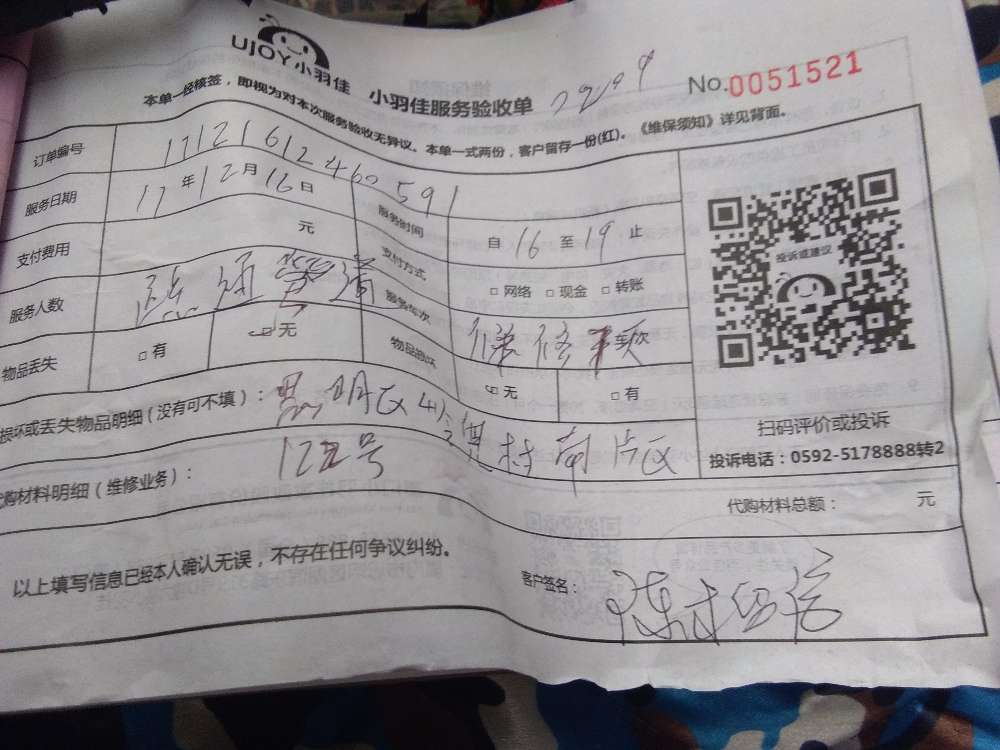 UJOY小羽佳 小羽佳服务验收单
No.0051521
本单一经核签，即视为对本次服务验收无异议。本单一式两份，客户留存一份(红)。《维保须知》详见背面。
订单编号 17121612460591
服务日期 17年12月16日 服务时间 自16至19止
支付费用 元 支付方式 □网络 □现金 □转账
服务人数 疏通管道 服务车次
物品丢失 □有 □无 物品损坏 □无 □有
损坏或丢失物品明细（没有可不填）：
村南片区
代购材料明细（维修业务）： 号
代购材料总额： 元
以上填写信息已经本人确认无误，不存在任何争议纠纷。
客户签名：
投诉或建议
扫码评价或投诉
投诉电话：0592-5178888转2